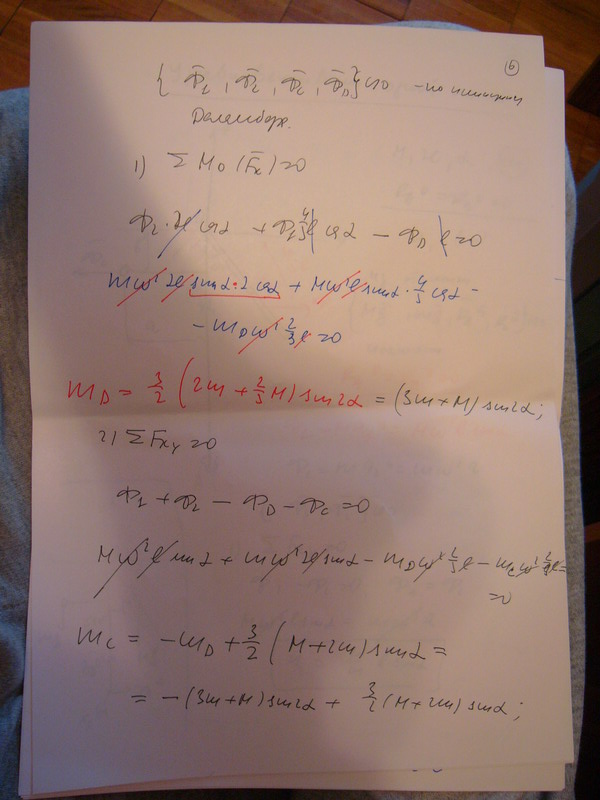 6
{ Φ̄₁, Φ̄₂, Φ̄_C, Φ̄_D } ∾ 0 – по принципу
Даламбера.
1) Σ M_O (F̄_K) = 0
Φ₂ · 2l cos α + Φ₁ 4/3 l cos α − Φ_D l = 0
mω² 2l sin α · 2 cos α + Mω² l sin α · 4/3 cos α −
− m_D ω² 2/3 l = 0
m_D = 3/2 (2m + 2/3 M) sin 2α = (3m + M) sin 2α;
2) Σ F_Ky = 0
Φ₁ + Φ₂ − Φ_D − Φ_C = 0
Mω² l sin α + mω² 2l sin α − m_D ω² 2/3 l − m_C ω² 2/3 l =
= 0
m_C = − m_D + 3/2 (M + 2m) sin α =
= − (3m + M) sin 2α + 3/2 (M + 2m) sin α;